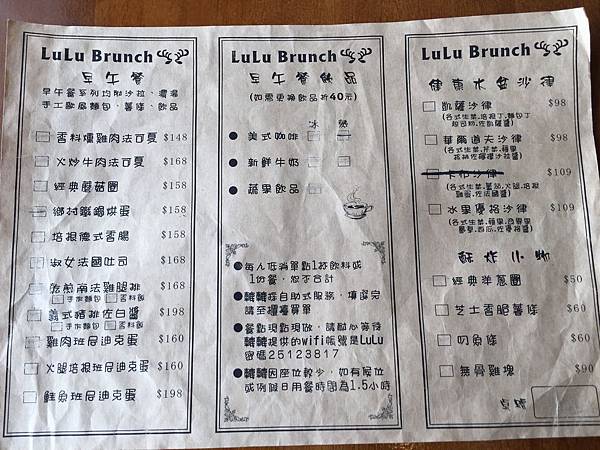 LuLu Brunch
早午餐
早午餐系列均附沙拉、濃湯
手工歐風麵包、薯條、飲品
香料燻雞肉法可夏 $148
火炒牛肉法可夏 $168
經典蘑菇圈 $158
鄉村鐵鍋烘蛋 $158
培根德式香腸 $158
淑女法國吐司 $168
乾煎南法雞腿排
手作麵包 香料飯
義式豬排佐白醬 $198
手作麵包 香料飯
雞肉班尼迪克蛋 $160
火腿培根班尼迪克蛋 $160
鮭魚班尼迪克蛋 $198
LuLu Brunch
早午餐飲品
(如需更換飲品折40元)
冰 熱
美式咖啡
新鮮牛奶
蔬果飲品
每人低消單點1杯飲料或
1份餐，恕不合計
轉轉採自助式服務，填寫完
請至櫃檯買單
餐點現點現做，請耐心等待
轉轉提供的wifi帳號是LuLu
密碼25123817
轉轉因座位較少，如有候位
或例假日用餐時間為1.5小時
LuLu Brunch
健康水盆沙律
凱薩沙律 $98
(各式生菜,培根丁,麵包丁
起司粉,佐凱薩醬)
華爾道夫沙律 $98
(各式生菜,芹菜,蘋果
核桃佐檸檬沙拉醬)
卡布沙律 $109
(各式生菜,蕃茄,火腿,培根
雞蛋,佐法國醬)
水果優格沙律 $109
(各式生菜,蘋果,奇異果
鳳梨,西瓜,佐優格醬)
酥炸小物
經典洋蔥圈 $50
芝士香脆薯條 $60
叻魚條 $60
無骨雞塊 $90
桌號